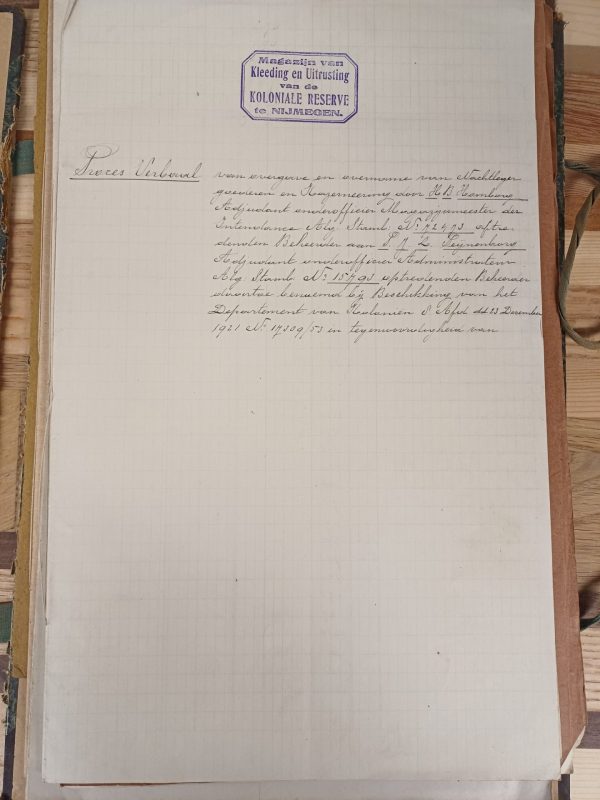 Magazijn van
Kleeding en Uitrusting
van de
KOLONIALE RESERVE
te NIJMEGEN.
Proces Verbaal van overgave en overname van Nachtleger
goederen en Kazerneering door H. B. Hamburg
Adjudant onderofficier Magazijnmeester der
Intendance Alg. Stamb. No. 72473 aftre-
denden Beheerder aan P. J. L.
Adjudant onderofficier Administratein
Alg. Stamb. No. 15793 optredenden Beheerder
daartoe benoemd bij Beschikking van het
Departement van Kolonien 8e Afd dd 23 December
1921 No. 17309/53 in tegenwoordigheid van